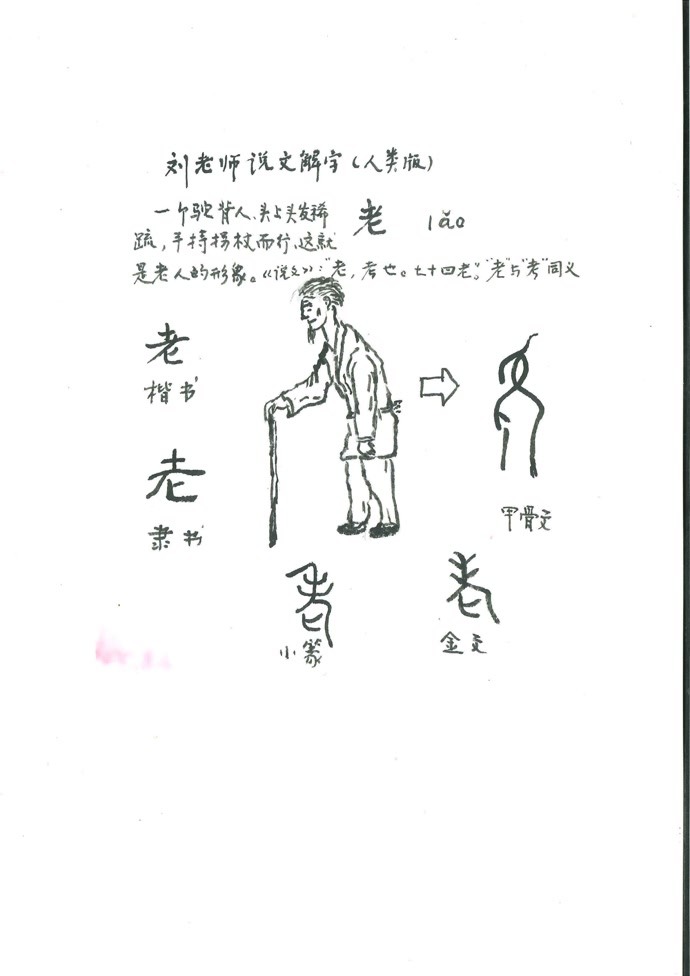 刘老师说文解字（人类版）
一个驼背人、头上头发稀
疏，手持拐杖而行，这就
是老人的形象。《说文》："老，考也。七十曰老"。"老"与"考"同义
老 lǎo
老
楷书
老
隶书
甲骨文
老
小篆
老
金文